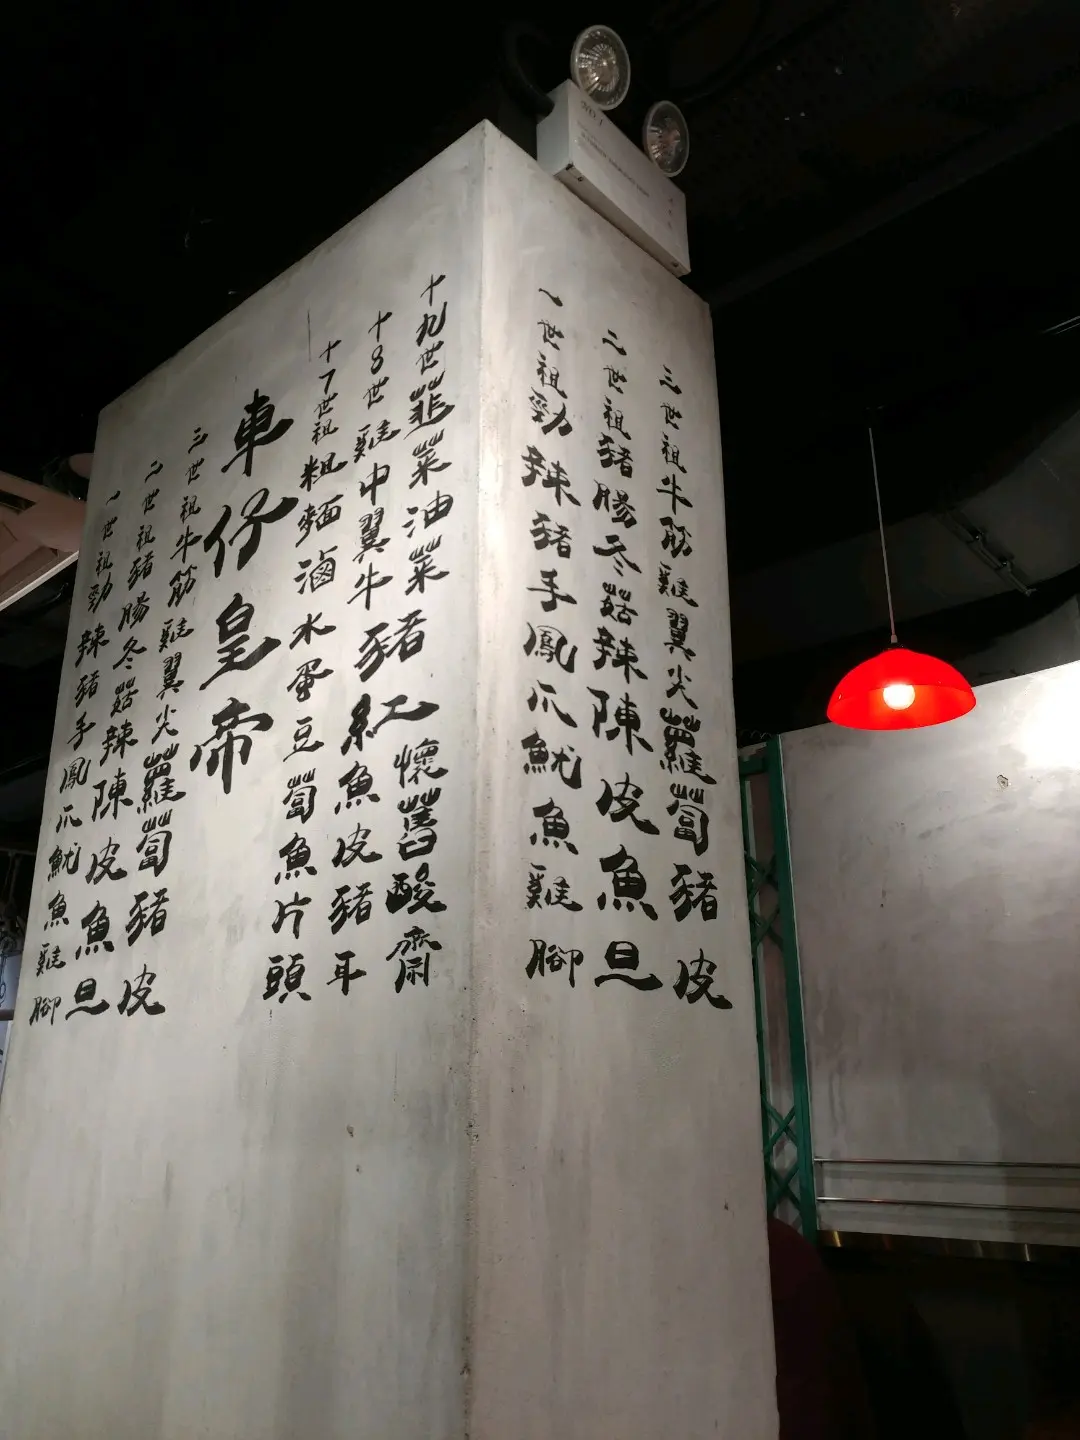 十九世韮菜油菜豬紅懷舊酸齋
十8世雞中翼牛豬紅魚皮豬耳
十7世祖粗麵滷水蛋豆蔔魚片頭
車仔皇帝
三世祖牛筋雞翼尖蘿蔔豬皮
二世祖豬腸冬菇辣陳皮魚旦
一世祖勁辣豬手鳳爪魷魚雞腳
三世祖牛筋雞翼尖蘿蔔豬皮
二世祖豬腸冬菇辣陳皮魚旦
一世祖勁辣豬手鳳爪魷魚雞腳